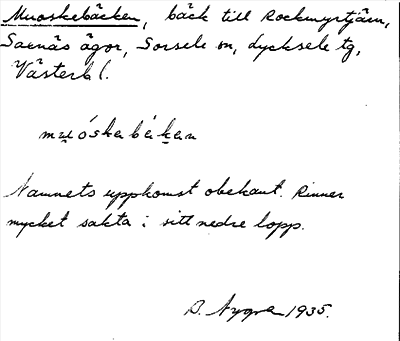 Muoskebäcken, bäck till Rockmyrtjärn,
Saenäs ägor, Sorsele sn, Lycksele tg,
Västerb l.
muóskabäkan
Namnets uppkomst obekant. Rinner
mycket sakta i sitt nedre lopp.
B. Nygra 1935.